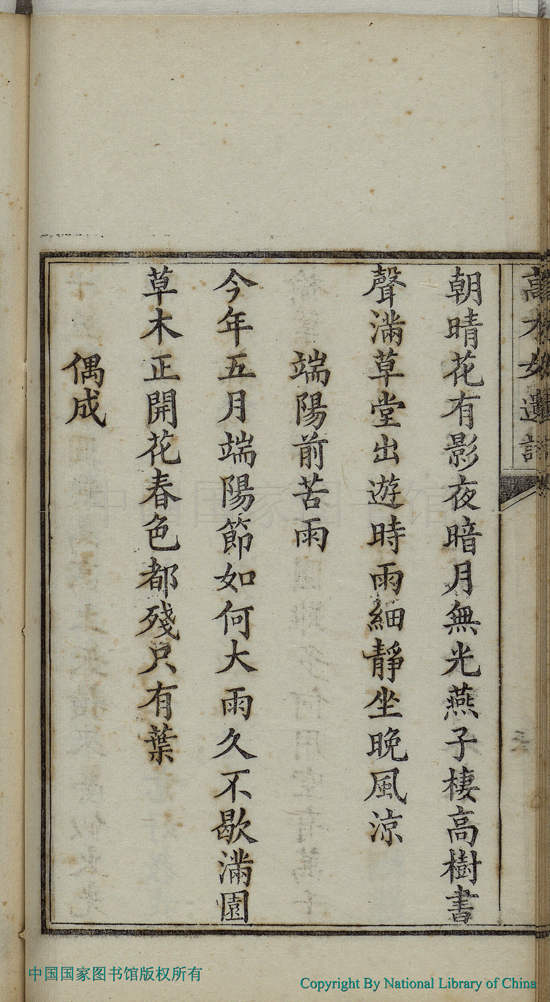 朝晴花有影夜暗月無光燕子棲高樹書
聲滿草堂出遊時雨細靜坐晚風涼
端陽前苦雨
今年五月端陽節如何大雨久不歇滿園
草木正開花春色都殘只有葉
偶成
中国国家图书馆
中国国家图书馆版权所有
Copyright By National Library of China